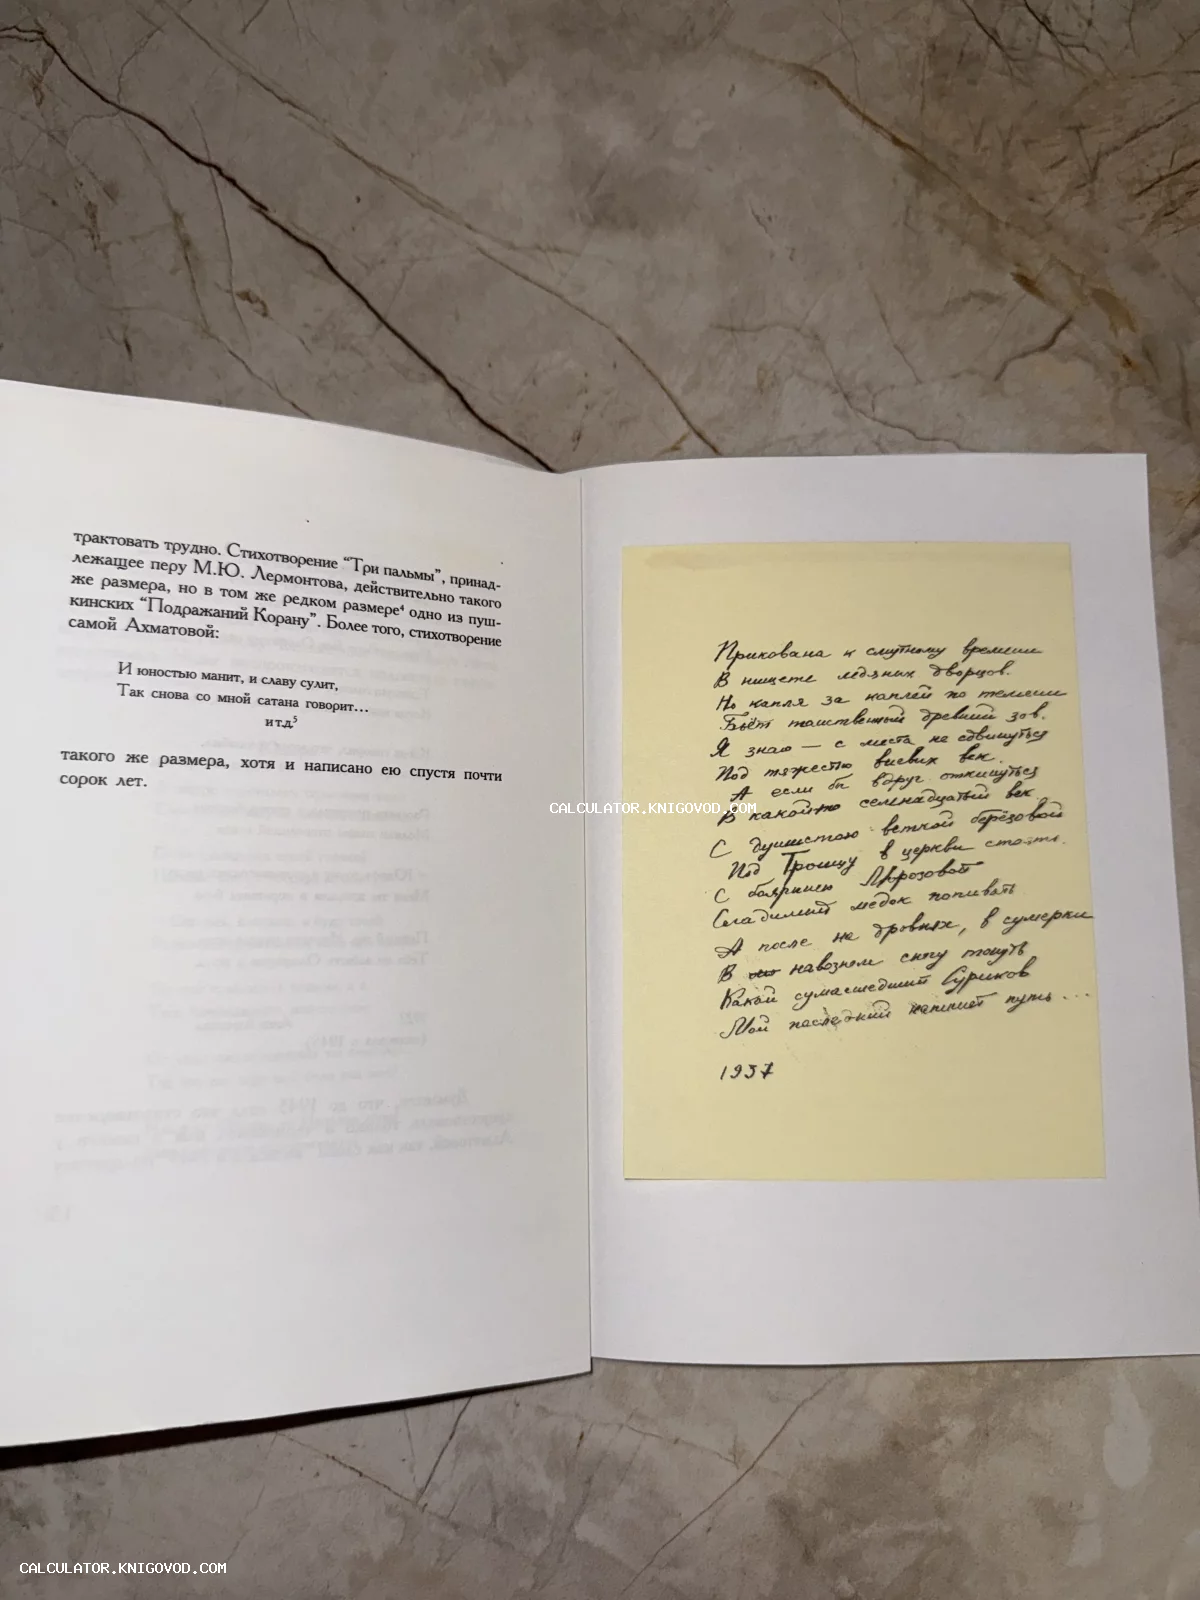 трактовать трудно. Стихотворение “Три пальмы”, принад-
лежащее перу М.Ю. Лермонтова, действительно такого
же размера, но в том же редком размере⁴ одно из пуш-
кинских “Подражаний Корану”. Более того, стихотворение
самой Ахматовой:
И юностью манит, и славу сулит,
Так снова со мной сатана говорит...
и т.д.⁵
такого же размера, хотя и написано ею спустя почти
сорок лет.
Прикована к смутному времени
В нищете ледяных дворцов.
Но капля за каплей по темени
Бьёт таинственный древний зов.
Я знаю — с места не сдвинуться
Под тяжестью виевых век.
А если бы вдруг откинуться
В какой-то семнадцатый век.
С душистою веткой берёзовой
Под Троицу в церкви стоять.
С боярынею Морозовой
Сладимый медок попивать
А после на дровнях, в сумерки
В навозном снегу тонуть
Какой сумасшедший Суриков
Мой последний напишет путь...
1937
CALCULATOR.KNIGOVOD.COM
CALCULATOR.KNIGOVOD.COM